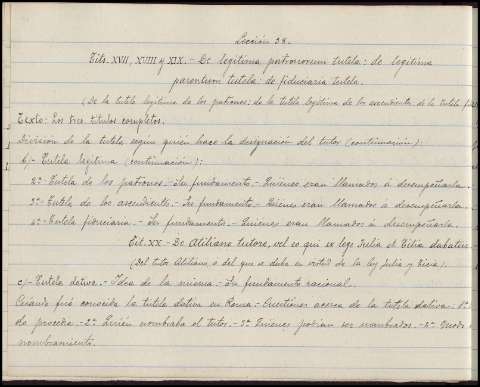 Lección 38.
Tits. XVII, XVIII y XIX. - De legitima patronorum tutela: de legitima
parentium tutela: de fiduciaria tutela.
(De la tutela legítima de los patronos: de la tutela legítima de los ascendientes: de la tutela
Texto: Los tres títulos completos.
División de la tutela según quién hace la designación del tutor (continuación):
b) - Tutela legítima (continuación):
2º - Tutela de los patronos. - Su fundamento. - Quiénes eran llamados á desempeñarla.
3º - Tutela de los ascendientes. - Su fundamento. - Quiénes eran llamados á desempeñarla.
4º - Tutela fiduciaria. - Su fundamento. - Quiénes eran llamados á desempeñarla.
Tit. XX. - De Atiliano tutore, vel eo qui ex lege Iulia et Titia dabatur.
(Del tutor Atiliano, o del que se daba en virtud de la ley Julia y Ticia).
c) - Tutela dativa. - Idea de la misma. - Su fundamento racional.
Cuándo fué conocida la tutela dativa en Roma. - Cuestiones acerca de la tutela dativa. - 1º
do procedía. - 2º Quién nombraba el tutor. - 3º Quiénes podían ser nombrados. - 4º Modo
nombramiento.